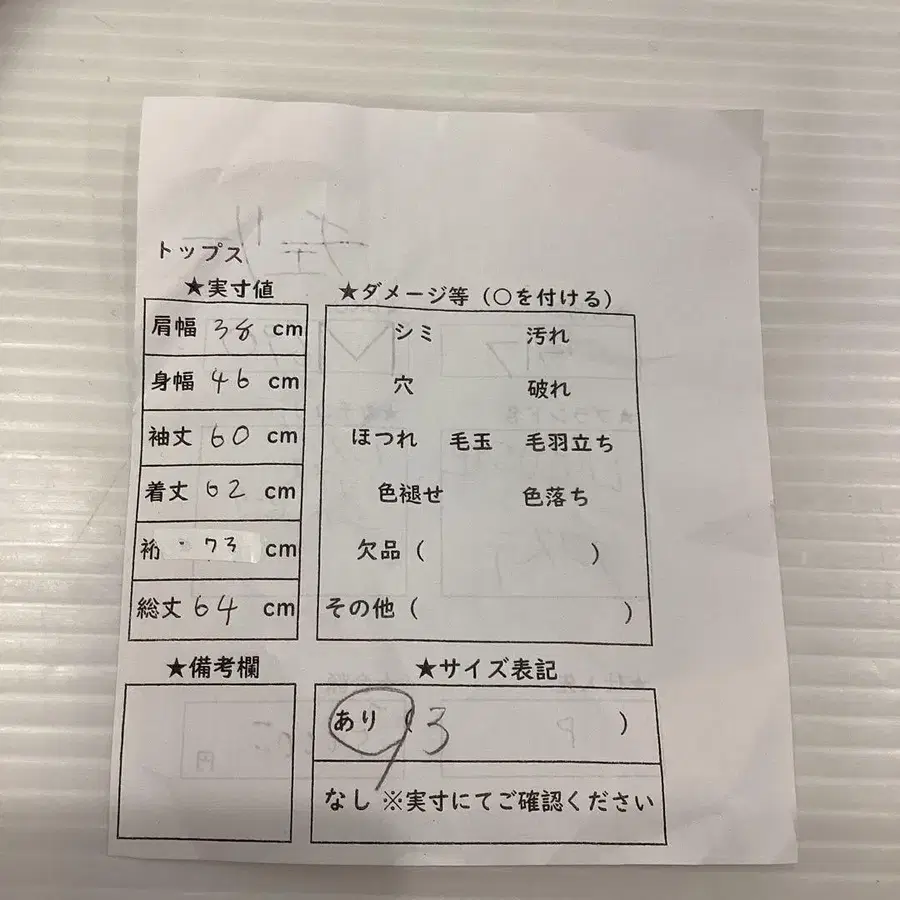 トップス
★実寸値
肩幅 38 cm
身幅 46 cm
袖丈 60 cm
着丈 62 cm
裄 73 cm
総丈 64 cm
★ダメージ等（○を付ける）
シミ 汚れ
穴 破れ
ほつれ 毛玉 毛羽立ち
色褪せ 色落ち
欠品（ ）
その他（ ）
★備考欄
★サイズ表記
あり（3 ）
なし ※実寸にてご確認ください